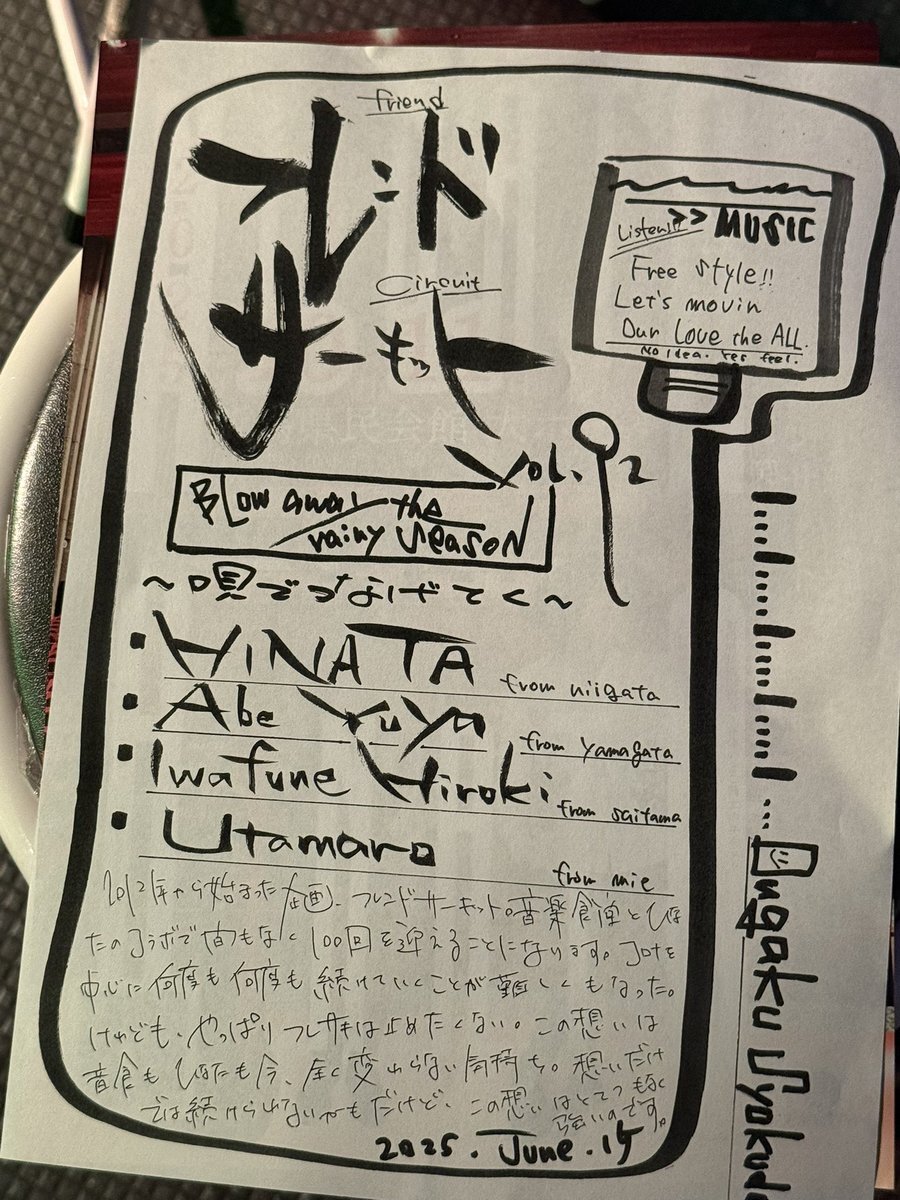 friend
フレンド
Circuit
サーキット
vol. 92
Listen!! >> MUSIC
Free style!!
Let's movin
Our Love the ALL.
No idea. Yes feel.
Blow away the
rainy season
~唄でつなげてく~
・HINATA from niigata
・Abe Yuya from yamagata
・Iwafune Hiroki from saitama
・Utamaro from mie
2012年から始まった企画、フレンドサーキット。音楽食堂とひな
たのコラボで間もなく100回を迎えることになります。コロナを
中心に何度も何度も続けていくことが難しくもなった。
けれども、やっぱりフレサキは止めたくない。この想いは
音食もひなたも今、全く変わらない気持ち。想いだけ
では続けられないかもだけど、この想いはとてつもなく
強いのです。
2025. June. 15
Ongaku Syokudo